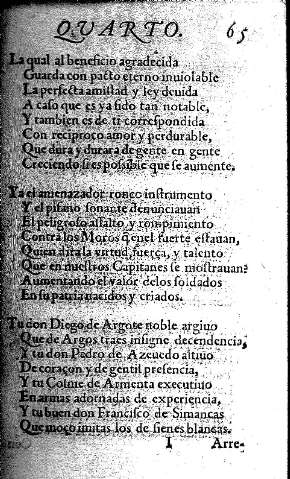 QVARTO. 65
La qual al beneficio agradecida
Guarda con pacto eterno inuiolable
La perfecta amistad y ley deuida
A caso que es ya sido tan notable,
Y tambien es de ti correspondida
Con reciproco amor y perdurable,
Que dura y durara de gente en gente
Creciendo si es possible que se aumente.
Ya el amenazador ronco instrumento
Y el pifano sonante denunciauan
El peligroso assalto y rompimiento
Contra los Moros q̃ enel fuerte estauan,
Quien dira la virtud, fuerça, y talento
Que en nuestros Capitanes se mostrauan?
Aumentando el valor delos soldados
En su patria nacidos y criados.
Tu don Diego de Argote noble argiuo
Que de Argos traes insigne decendencia,
Y tu don Pedro de Azeuedo altiuo
De coraçon y de gentil presencia,
Y tu Colme de Armenta executiuo
En armas adornadas de experiencia,
Y tu buen don Francisco de Simancas
Que moço imitas los de sienes blancas.
I Arre-